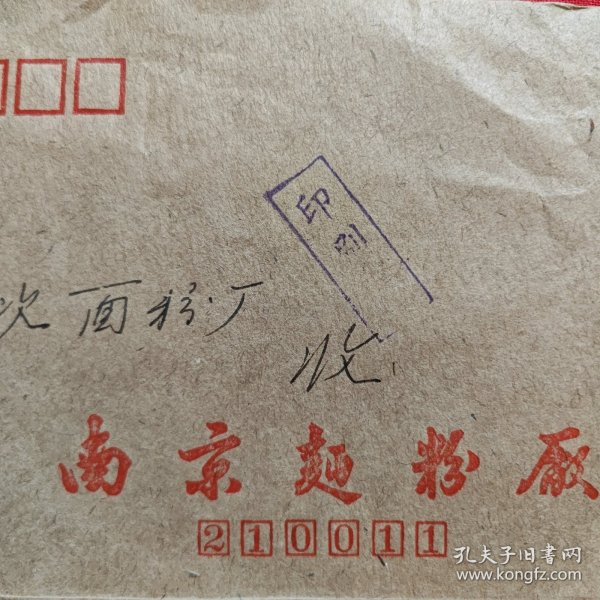 印刷
面粉厂
收
南京麺粉廠
210011
孔夫子旧书网
www.kongfz.com